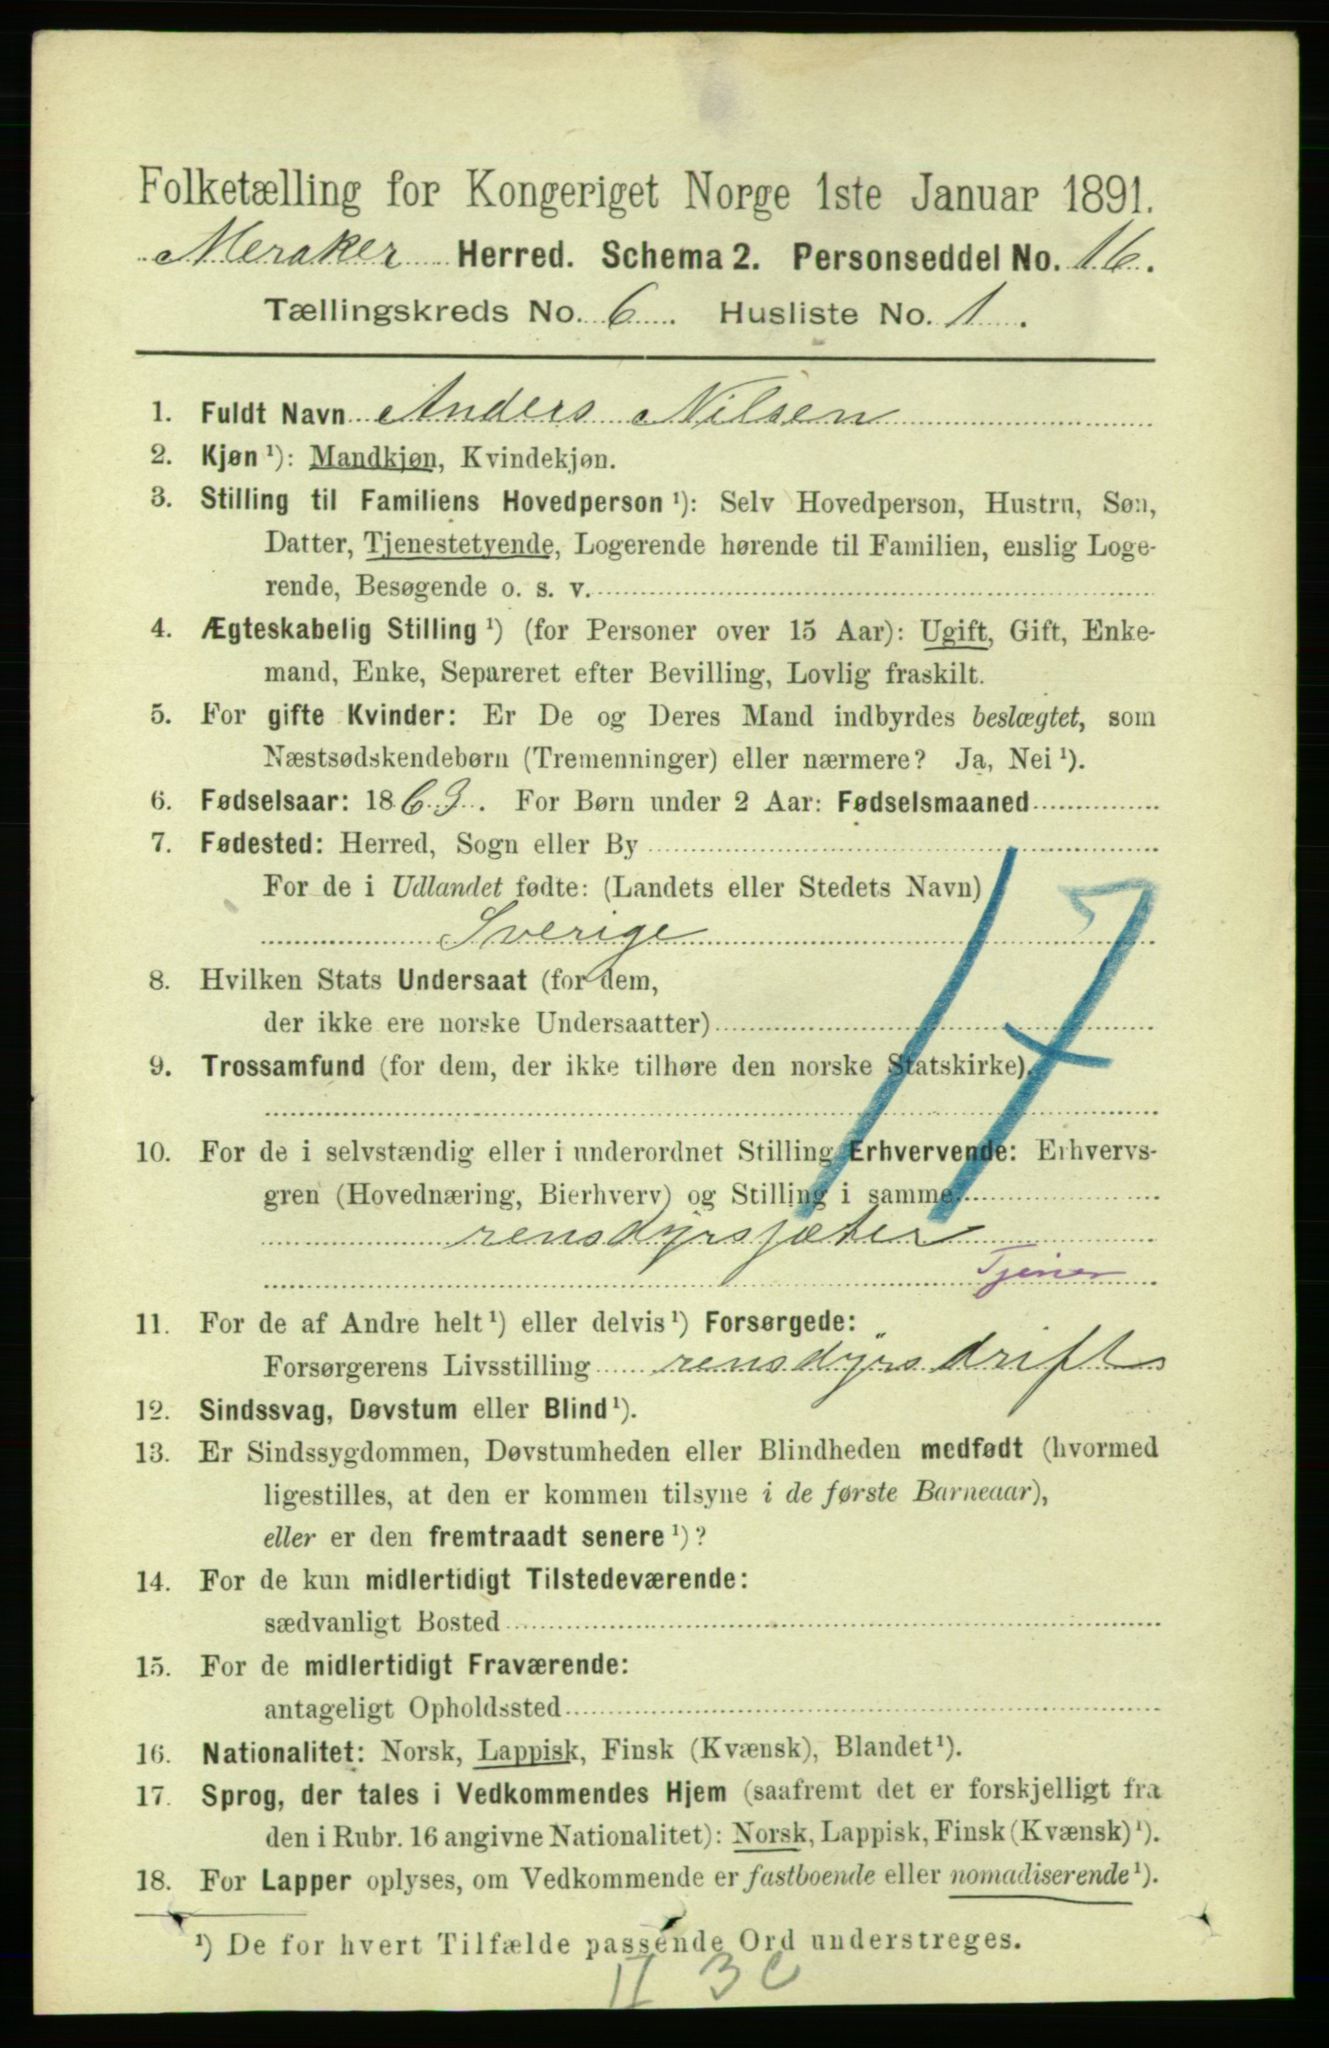 Folketælling for Kongeriget Norge 1ste Januar 1891.
Meraker Herred. Schema 2. Personseddel No. 16.
Tællingskreds No. 6. Husliste No. 1.
1. Fuldt Navn Anders Nilsen
2. Kjøn ¹): Mandkjøn, Kvindekjøn.
3. Stilling til Familiens Hovedperson ¹): Selv Hovedperson, Hustru, Søn,
Datter, Tjenestetyende, Logerende hørende til Familien, enslig Loge-
rende, Besøgende o. s. v.
4. Ægteskabelig Stilling ¹) (for Personer over 15 Aar): Ugift, Gift, Enke-
mand, Enke, Separeret efter Bevilling, Lovlig fraskilt.
5. For gifte Kvinder: Er De og Deres Mand indbyrdes beslægtet, som
Næstsødskendebørn (Tremenninger) eller nærmere? Ja, Nei ¹).
6. Fødselsaar: 1863. For Børn under 2 Aar: Fødselsmaaned
7. Fødested: Herred, Sogn eller By
For de i Udlandet fødte: (Landets eller Stedets Navn)
Sverige
8. Hvilken Stats Undersaat (for dem,
der ikke ere norske Undersaatter)
9. Trossamfund (for dem, der ikke tilhøre den norske Statskirke)
17
10. For de i selvstændig eller i underordnet Stilling Erhvervende: Erhvervs-
gren (Hovednæring, Bierhverv) og Stilling i samme
rensdyrsjæter
Tjener
11. For de af Andre helt ¹) eller delvis ¹) Forsørgede:
Forsørgerens Livsstilling rensdyrsdrift
12. Sindssvag, Døvstum eller Blind ¹).
13. Er Sindssygdommen, Døvstumheden eller Blindheden medfødt (hvormed
ligestilles, at den er kommen tilsyne i de første Barneaar),
eller er den fremtraadt senere ¹)?
14. For de kun midlertidigt Tilstedeværende:
sædvanligt Bosted
15. For de midlertidigt Fraværende:
antageligt Opholdssted
16. Nationalitet: Norsk, Lappisk, Finsk (Kvænsk), Blandet ¹).
17. Sprog, der tales i Vedkommendes Hjem (saafremt det er forskjelligt fra
den i Rubr. 16 angivne Nationalitet): Norsk, Lappisk, Finsk (Kvænsk) ¹).
18. For Lapper oplyses, om Vedkommende er fastboende eller nomadiserende ¹).
¹) De for hvert Tilfælde passende Ord understreges.
II 3 c